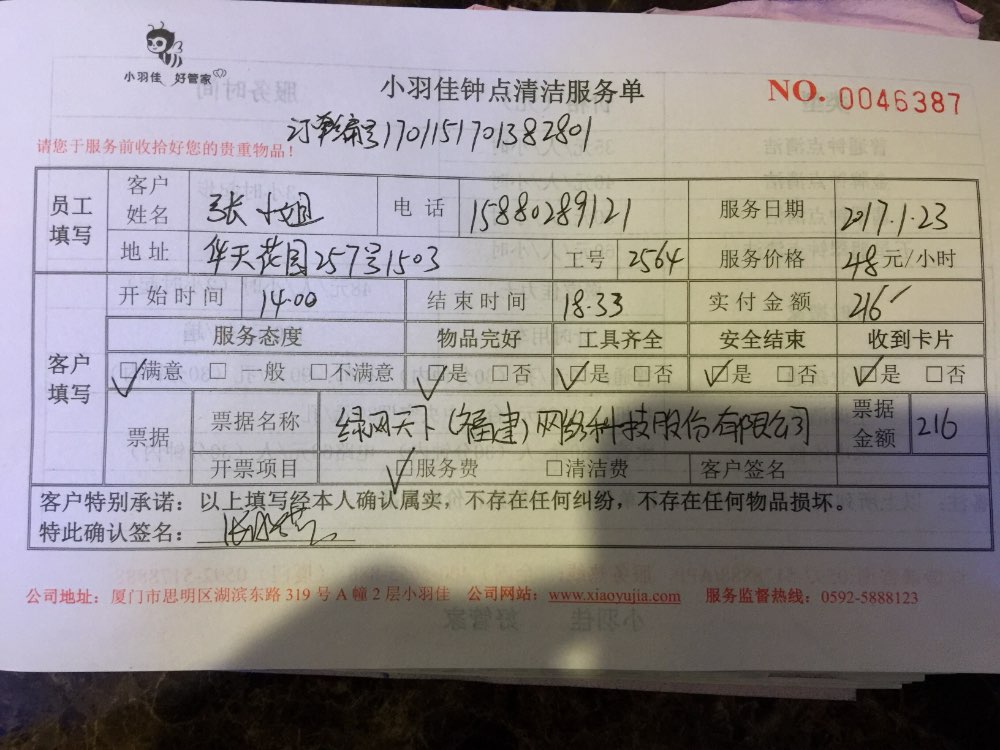 小羽佳 好管家
小羽佳钟点清洁服务单
NO. 0046387
订单编号1701151701382801
请您于服务前收拾好您的贵重物品！
员工填写 客户姓名 张小姐 电话 15880289121 服务日期 2017.1.23
地址 华天花园257号1503 工号 2564 服务价格 48元/小时
客户填写 开始时间 14:00 结束时间 18:33 实付金额 216
服务态度 物品完好 工具齐全 安全结束 收到卡片
☑满意 □一般 □不满意 ☑是 □否 ☑是 □否 ☑是 □否 ☑是 □否
票据 票据名称 绿网天下(福建)网络科技股份有限公司 票据金额 216
开票项目 ☑服务费 □清洁费 客户签名
客户特别承诺：以上填写经本人确认属实，不存在任何纠纷，不存在任何物品损坏。
特此确认签名：
公司地址：厦门市思明区湖滨东路319号A幢2层小羽佳 公司网站：www.xiaoyujia.com 服务监督热线：0592-5888123